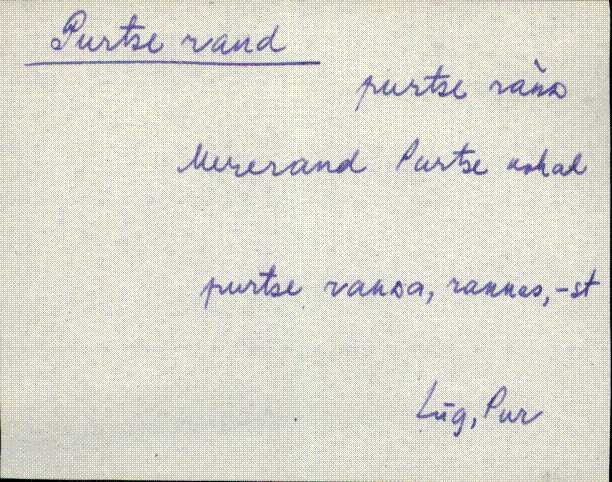 Purtse rand
purtse rànᴅ
Mererand Purtse kohal
purtse ranᴅa, rannas, -st
Lüg, Pur